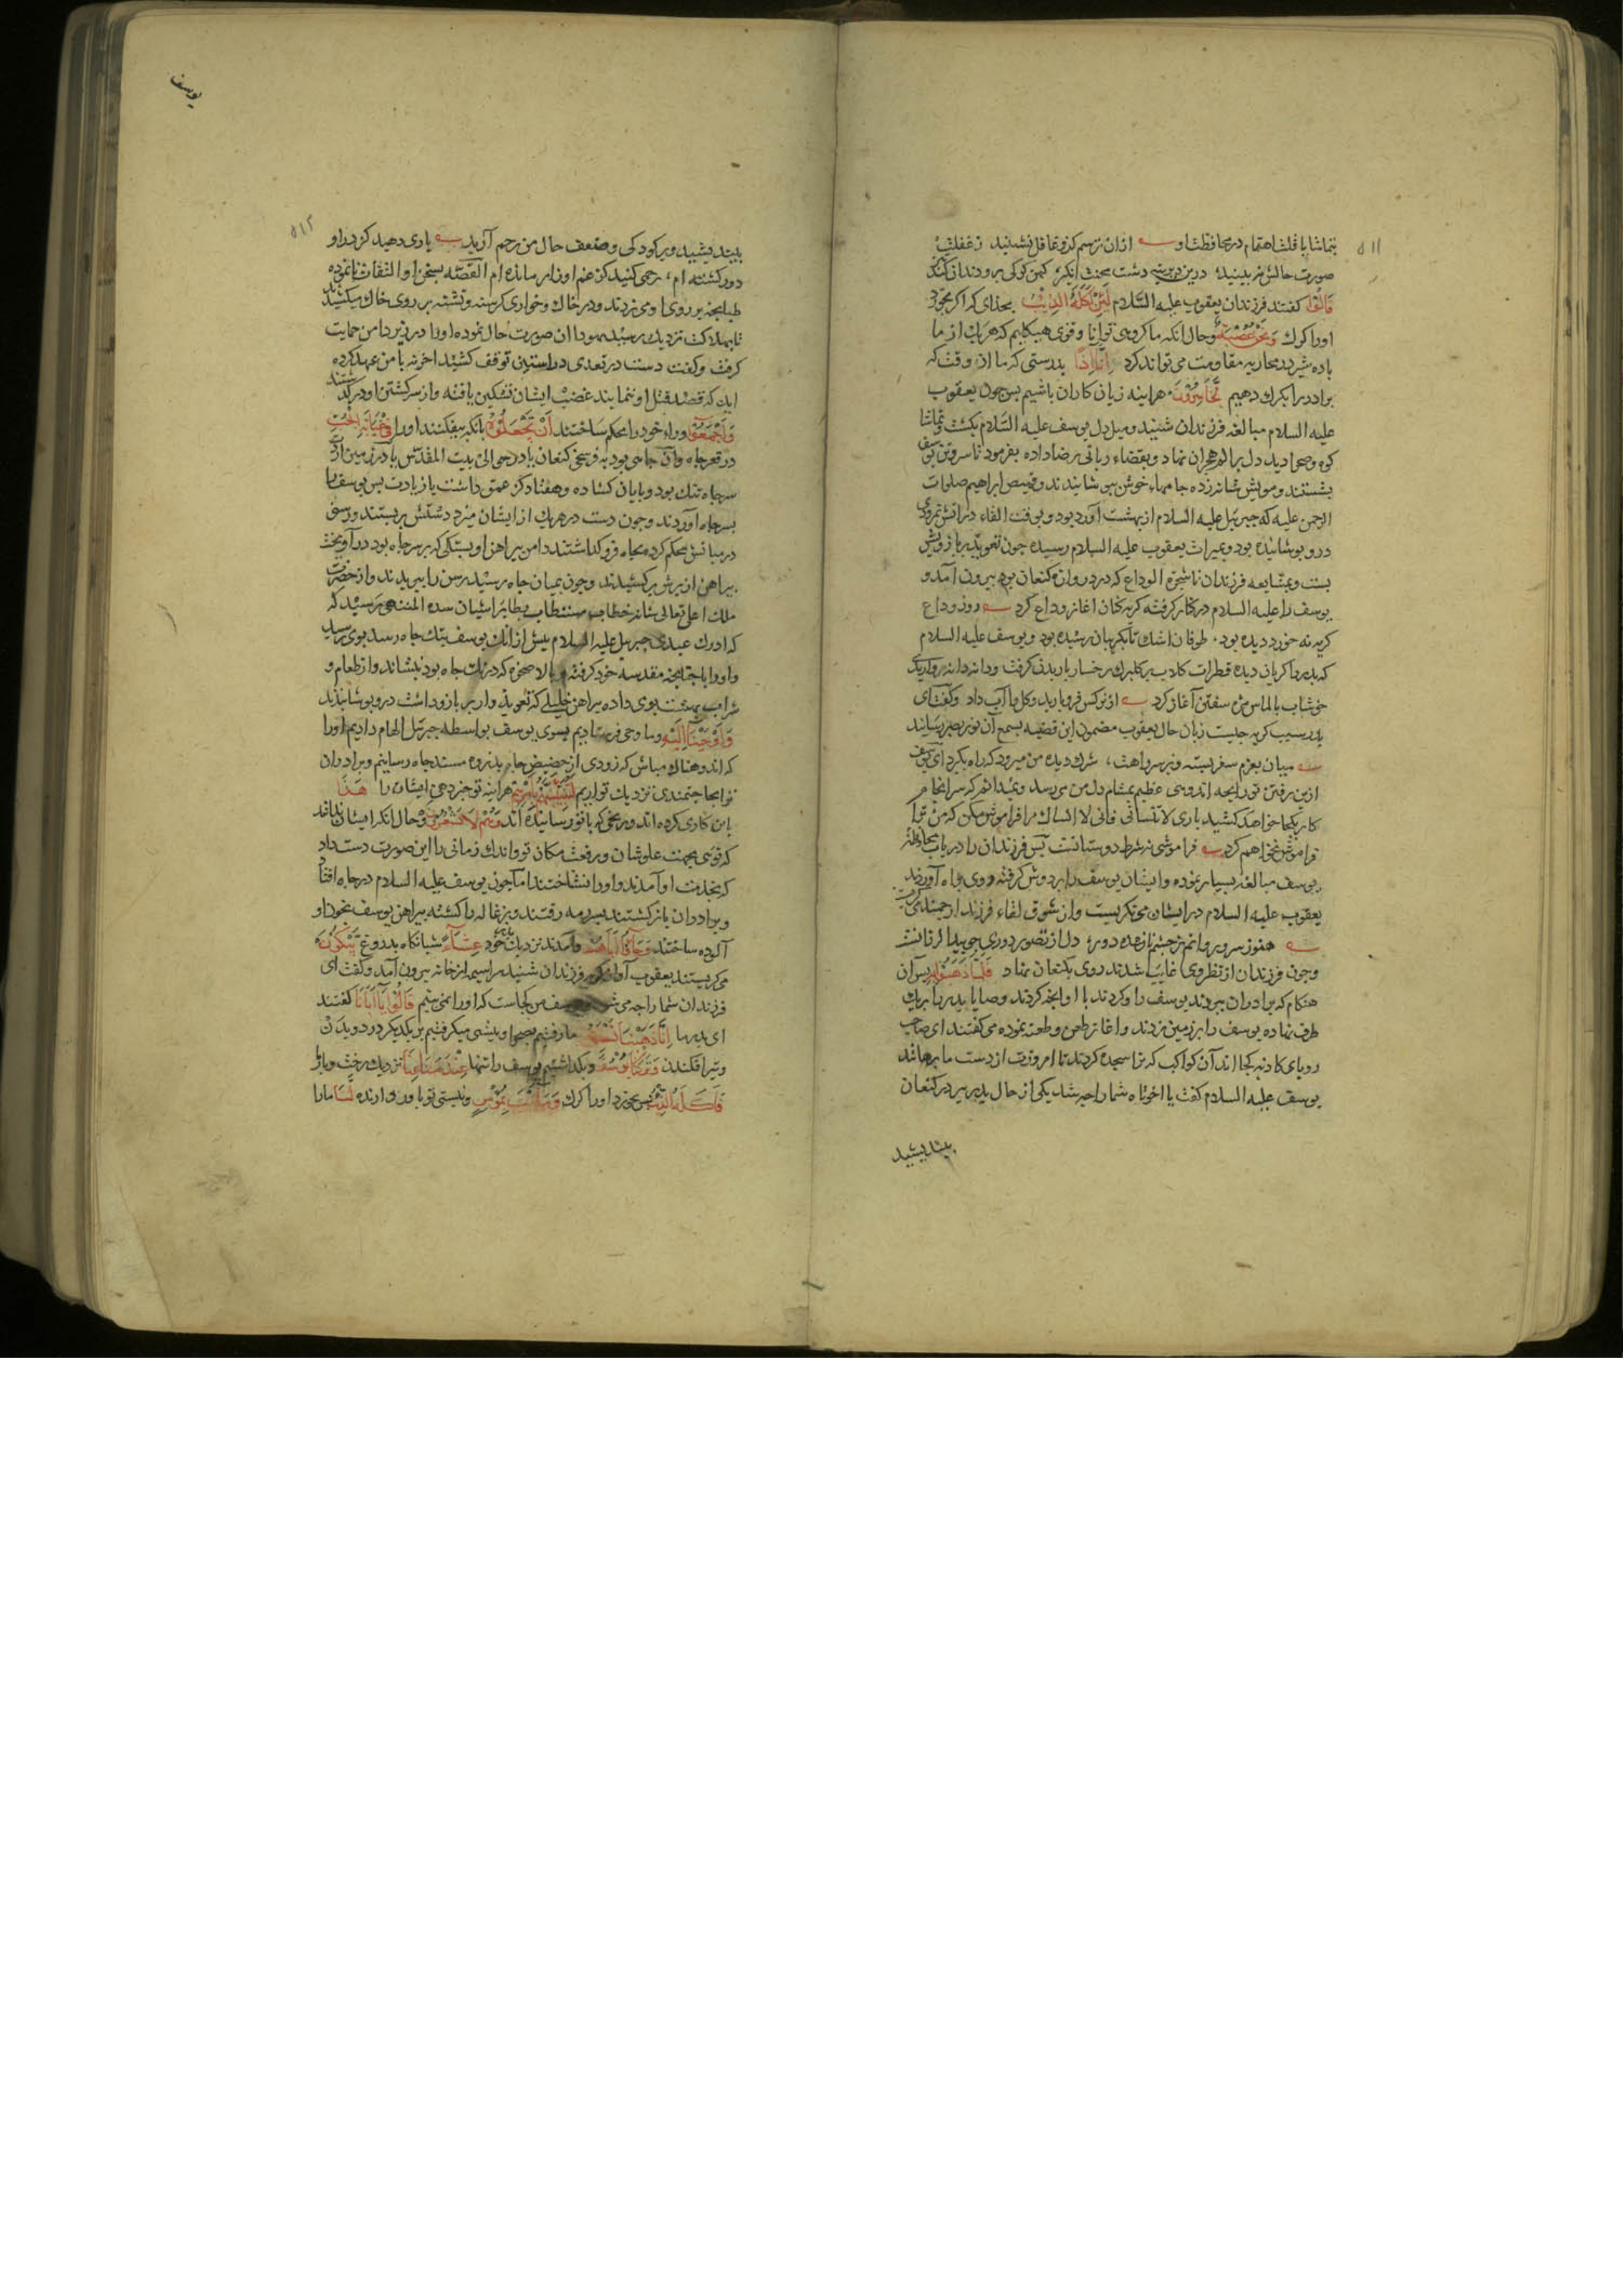 ۵۱۱
بتماشا یا قلت اهتمام در محافظت او ـه ازان ترسم کزو غافل نشینید ز غفلت
صورت حالش نبینید درین دیرینه دشت محنت انگیز کهن گرگی برو دندان کند تیز
قَالُوا گفتند فرزندان یعقوب علیه السلام لَئِنْ أَكَلَهُ الذِّئْبُ بخدای که اگر بخورد
اورا گرگ وَنَحْنُ عُصْبَةٌ وحال انکه ما گروهی توانا و قوی هیکلیم که هریک از ما
باده شیر در محاربه مقاومت می تواند کرد إِنَّا إِذًا بدرستی که ما ان وقت که
برادر را بگرگ دهیم لَخَاسِرُونَ هراینه زیان کاران باشیم پس چون یعقوب
علیه السلام مبالغه فرزندان شنید و میل دل یوسف علیه السلام بگشت و تماشا
کوه و صحرا دید دل بر الم هجران نهاد و بقضاء ربانی رضا داده بفرمود تا سر و تن یوسف
بشستند و مویش شانه زده جامهاء خوش بپوشانیدند و قمیص ابراهیم صلوات
الرحمن علیه که جبرئیل علیه السلام از بهشت آورده بود و بوقت القاء در اتش نمرودی
درو پوشانیده بود و بمیراث یعقوب علیه السلام رسیده چون تعویذ بر بازویش
بست و بمشایعه فرزندان تا شجرة الوداع که در دروازه کنعان بود بیرون آمد و
یوسف را علیه السلام در کنار گرفته گریه کنان اغاز وداع کرد ـه روز وداع
گریه نه خورد دیده بود طوفان اشک تا بگریبان رسیده بود و یوسف علیه السلام
که پدر را گریان دیده قطرات گلاب بر گلبرگ رخسار باریدن گرفت و دانه دانه مروارید
خوشاب بالماس مژه سفتن آغاز کرد ـه از نرگس فرو بارید و گل را آب داد و گفت ای
پدر سبب گریه چیست زبان حال یعقوب مضمون این قضیه بسمع آن نور بصر رساند
ـه میان بعزم سفر بسته و سرراهت سرشک دیده من میرود که راه بگیرد ای یوسف
ازین رفتن تو رایحه اندوهی عظیم بمشام دل من می رسد و نمیدانم که سرانجام
کار بکجا خواهد کشید باری لا تنسانی فانی لا انساک مرا فراموش مکن که من ترا
فراموش نخواهم کرد ـه فراموشی نه شرط دوستانست پس فرزندان را در باب محافظت
یوسف مبالغه بسیار نموده و ایشان یوسف را بر دوش گرفته روی براه آوردند
یعقوب علیه السلام در ایشان می نگریست و از شوق لقاء فرزند ارجمند می گریست
ـه هنوز سرو روانم ز چشم نا شده دور دل از تصور دوری چو بید لرزانست
و چون فرزندان از نظر وی غایب شدند روی بکنعان نهاد فَلَمَّا ذَهَبُوا بِهِ پس آن
هنگام که برادران ببردند یوسف را و کردند با او آنچه کردند وصایا پدر را بریک
طرف نهاده یوسف را بر زمین زدند و اغاز طعن و طعنه نموده می گفتند ای صاحب
رویای کاذبه کجا اند آن کواکب که ترا سجده کردند تا امروزت از دست ما برهانند
یوسف علیه السلام گفت یا اخوتاه شمارا چه شد یکی از حال پدر پیر در کنعان
بیندیشید
یوسف
۵۱۲
بیندیشید و بر کودکی و ضعف حال من رحم آرید ـه یاری دهید کز در او
دور گشته ام رحمی کنید کز غم او زار مانده ام القصه بسخن او التفات نانموده
طپانچه بر روی او می زدند و در خاک و خواری گرسنه و تشنه بر روی خاک میکشیدند
تا بهلاکت نزدیک رسید یهودا ان صورت حال نموده اورا در زیر دامن حمایت
گرفت و گفت دست در تعدی در استین توقف کشید اخر نه با من عهد کرده
اید که قصد قتل او ننمایند غضب ایشان تسکین یافته و از سر کشتن او درگذشتند
وَأَجْمَعُوا و راء خود را محکم ساختند أَنْ يَجْعَلُوهُ بانکه بیفکنند اورا فِي غَيَابَةِ الْجُبِّ
در قعر چاه وان چاهی بود به فرسخی کنعان یا در حوالی بیت المقدس یا در زمین اردن
سر چاه تنگ بود و پایان کشاده و هفتاد گز عمق داشت یا زیادت پس یوسف را
بسر چاه آوردند و چون دست در هریک از ایشان میزد دستش بر بستند و رسنی
در میانش محکم کرده بچاه فرو گذاشتند دامن پیراهن او بسنگی که بر سر چاه بود در آویخت
پیراهن از برش بر کشیدند و چون بمیان چاه رسید رسن را ببریدند و از حضرت
ملک اعلی تعالی شانه خطاب مستطاب بطایر اشیان سدرة المنتهی رسید که
که ادرک عبدی جبریل علیه السلام پیش ازانک یوسف بتک چاه رسد بوی رسید
و اورا باجنحه مقدسه خود گرفته بر بالا صخره که در تک چاه بود نشاند و از طعام و
شراب بهشت بوی داده پیراهن خلیلی که تعویذ وار بر بازو داشت درو پوشانید
وَأَوْحَيْنَا إِلَيْهِ و ما وحی فرستادیم بسوی یوسف بواسطه جبرئیل الهام دادیم اورا
که اندوهناک مباش که زودی از حضیض چاه بذروه مسند جاه رسانیم و برادران
ترا بحاجتمندی نزدیک تو اریم لَتُنَبِّئَنَّهُمْ بِأَمْرِهِمْ هراینه تو خبر دهی ایشان را هَٰذَا
باین کاری کرده اند و رنجی که با تو رسانیده اند وَهُمْ لَا يَشْعُرُونَ و حال انکه ایشان ندانند
که توئی بجهت علو شان و رفعت مکان تو و اندک زمانی را این صورت دست داد
که بخدمت او آمدند و اورا نشناختند اما چون یوسف علیه السلام در چاه افتاد
و برادران باز گشتند بسر رمه رفتند و بزغاله را کشته پیراهن یوسف بخون او
آلوده ساختند وَجَاءُوا أَبَاهُمْ و آمدند نزدیک پدر خود عِشَاءً شبانگاه بدروغ يَبْكُونَ
می گریستند یعقوب آواز گریه فرزندان شنید سراسیمه از خانه بیرون آمد و گفت ای
فرزندان شمارا چه می شود یوسف من کجاست که اورا نمی بینم قَالُوا يَا أَبَانَا گفتند
ای پدر ما إِنَّا ذَهَبْنَا نَسْتَبِقُ ما رفتیم بصحرا و پیشی میگرفتیم بر یکدیگر در دویدن
و تیر افکندن وَتَرَكْنَا يُوسُفَ و بگذاشتیم یوسف را تنها عِنْدَ مَتَاعِنَا نزدیک رخت و بار
فَأَكَلَهُ الذِّئْبُ پس بخورد اورا گرگ وَمَا أَنْتَ بِمُؤْمِنٍ و نیستی تو باور دارنده لَنَا مارا